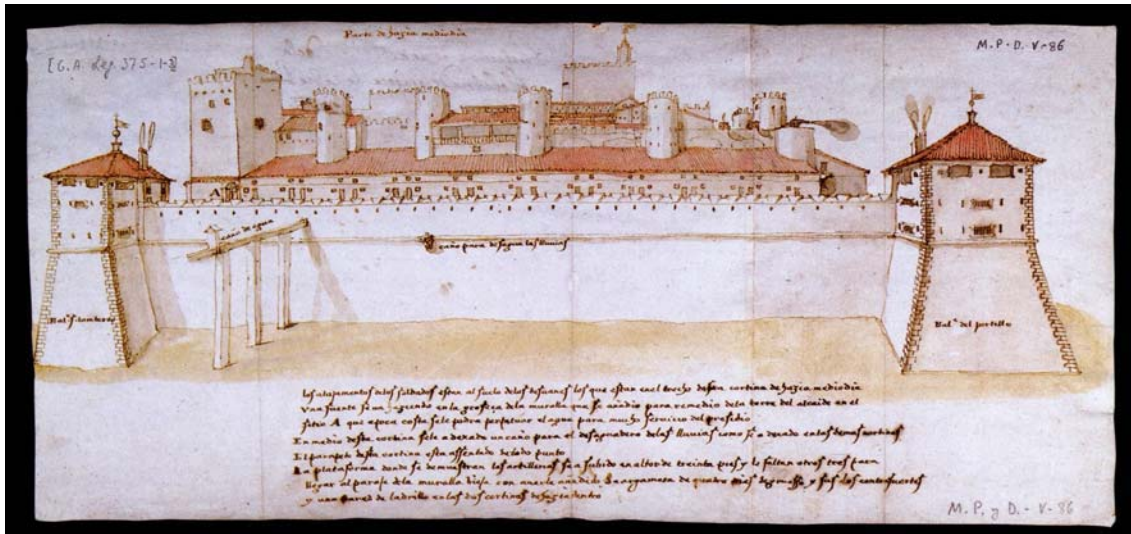 Parte de hazia mediodia
M. P. D. V-86
[G.A. Leg. 375-1-3]
A
caño de agua
caño para desaguar las lluvias
del portillo
los alojamentos a los soldados estan al suelo de los desvanes los que estan en el trecho desta cortina de hazia mediodia
Una fuente se va haziendo en la groseza de la muralla que se añadio para remedio de la torre del alcaide en el
sitio A que a poca costa se le podra perpetuar el agua para mucho servicio del presidio
En medio desta cortina se le a dexado un caño para el desaguadero de las lluvias como se a dexado en las demas cortinas
El parapeto desta cortina esta assentado de todo punto
La plataforma donde se demuestran las artillerias se a subido en altor de treinta pies y le faltan otros tres para
llegar al paraje de la muralla vieja con averle añadido argamasa de quatro pies de grosseza y sus dos contrafuertes
y una pared de ladrillo en las dos cortinas de hazia dentro
M. P. y D. - V-86